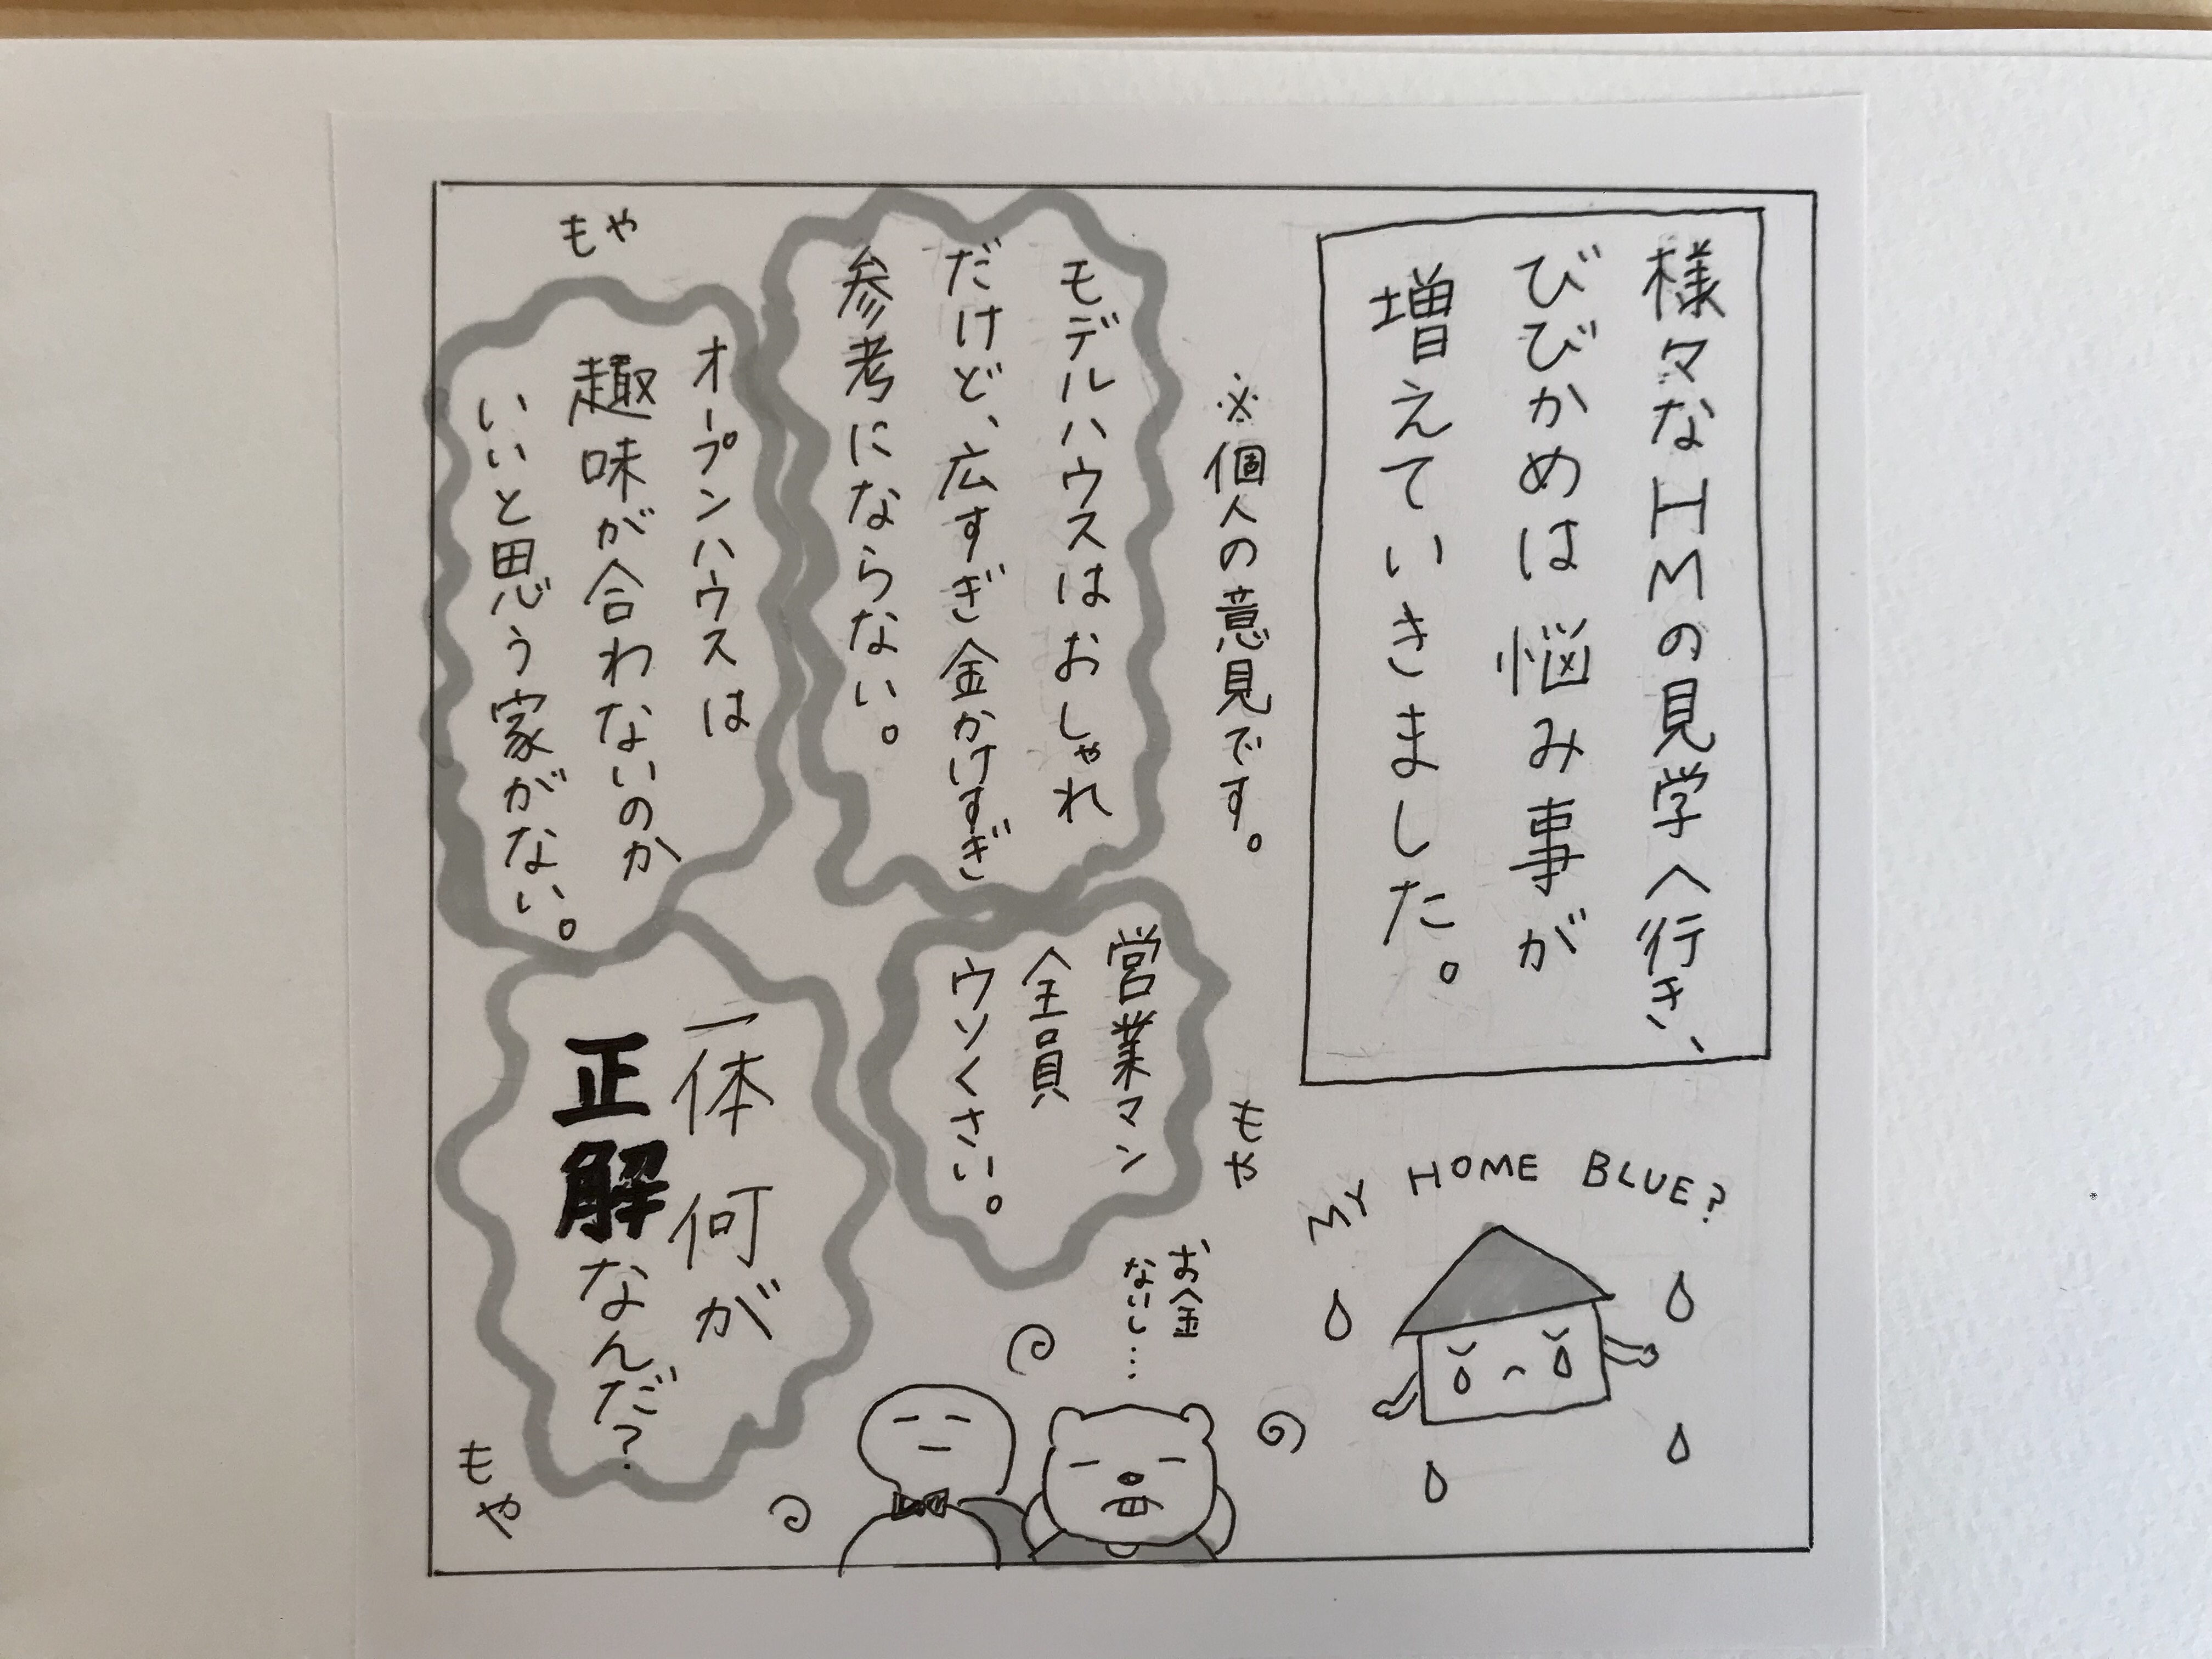 様々なHMの見学へ行き、
びびかめは悩み事が
増えていきました。
※個人の意見です。
モデルハウスはおしゃれ
だけど、広すぎ金かけすぎ
参考にならない。
もや
オープンハウスは
趣味が合わないのか
いいと思う家がない。
MY HOME BLUE?
もや
営業マン
全員
ウソくさい。
お金
ないし…
一体何が
正解なんだ?
もや